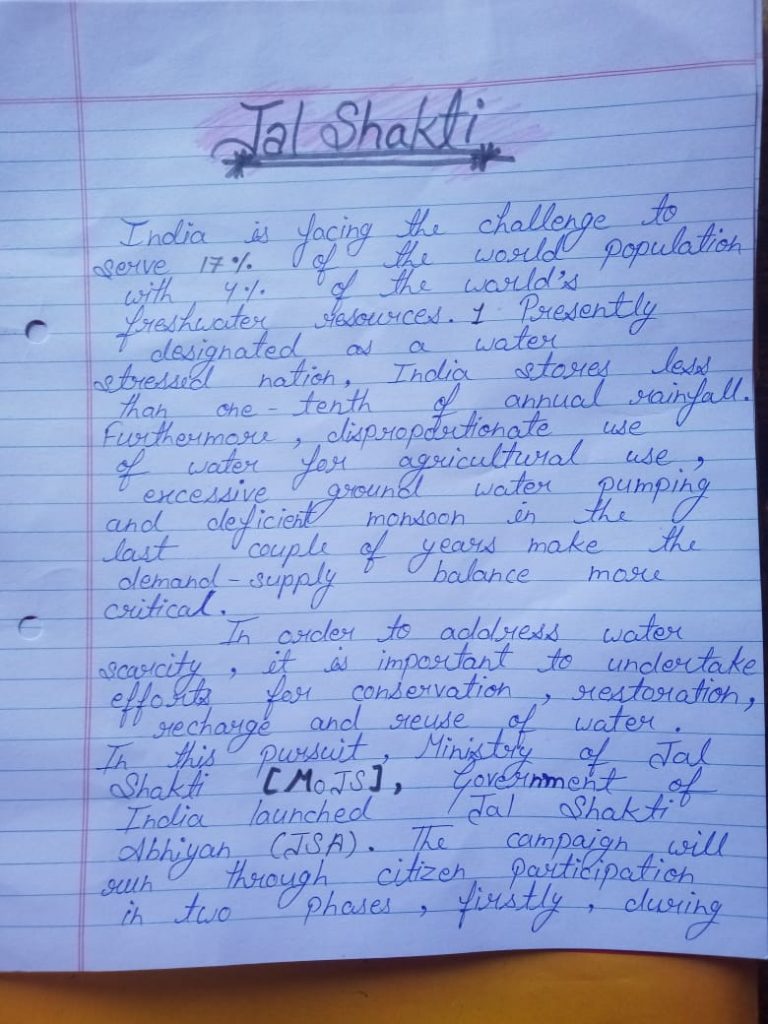 Jal Shakti
India is facing the challenge to
serve 17% of the world population
with 4% of the world's
freshwater resources. 1 Presently
designated as a water
stressed nation, India stores less
than one-tenth of annual rainfall.
Furthermore, disproportionate use
of water for agricultural use,
excessive ground water pumping
and deficient monsoon in the
last couple of years make the
demand-supply balance more
critical.
In order to address water
scarcity, it is important to undertake
efforts for conservation, restoration,
recharge and reuse of water.
In this pursuit, Ministry of Jal
Shakti [MoJS], Government of
India launched Jal Shakti
Abhiyan (JSA). The campaign will
run through citizen participation
in two phases, firstly, during